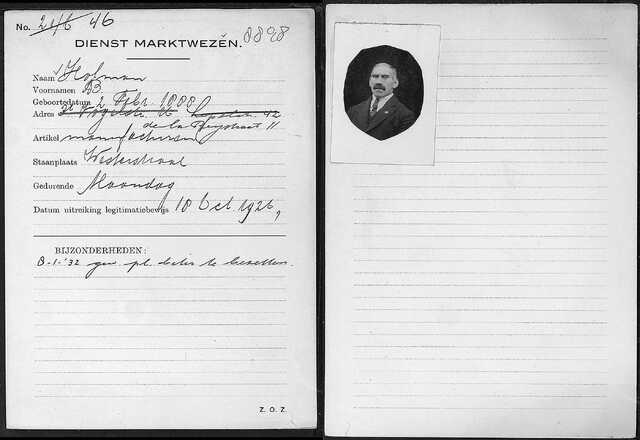 No. 246 46
8898
DIENST MARKTWEZEN.
Naam Hofman
Voornamen B
Geboortedatum 2 Febr. 1888
Adres
de la Reystraat 11
Artikel manufacturen
Staanplaats Westerstraat
Gedurende Maandag
Datum uitreiking legitimatiebewijs 18 Oct. 1926,
BIJZONDERHEDEN:
8-1-'32 gew. pl. beter te bezetten.
Z. O. Z.